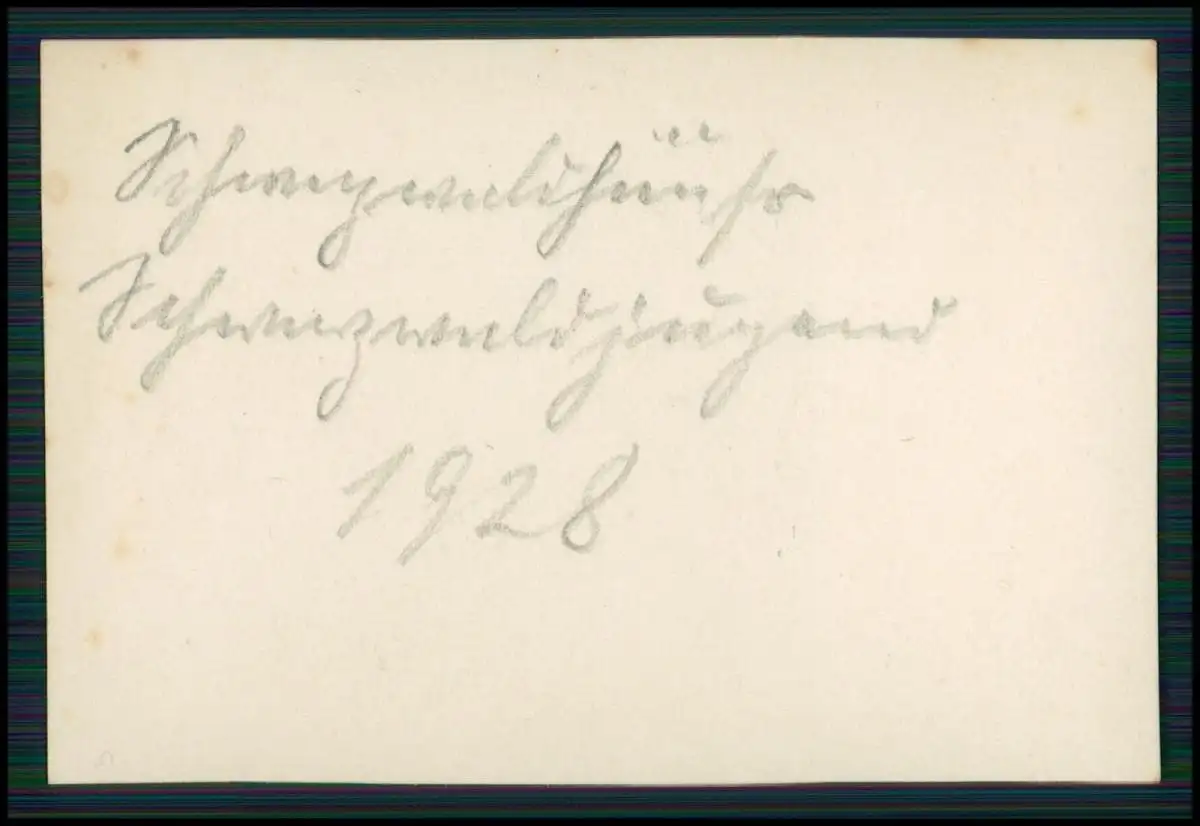 Schwarzwaldhäuser
Schwarzwaldjugend
1928